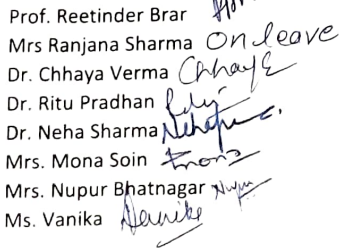 Prof. Reetinder Brar
Mrs Ranjana Sharma On leave
Dr. Chhaya Verma Chhaya
Dr. Ritu Pradhan
Dr. Neha Sharma
Mrs. Mona Soin
Mrs. Nupur Bhatnagar Nupur
Ms. Vanika